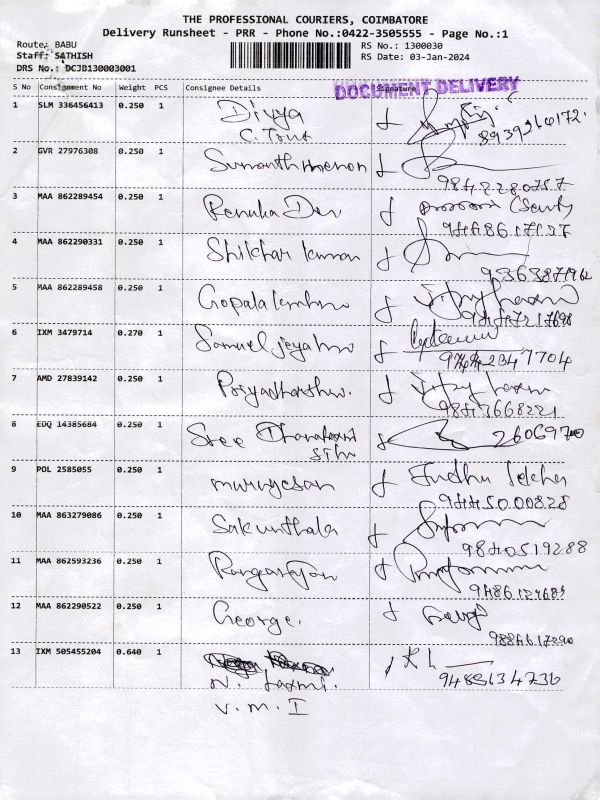 THE PROFESSIONAL COURIERS, COIMBATORE
Delivery Runsheet - PRR - Phone No.:0422-3505555 - Page No.:1
Route: BABU
Staff: SATHISH
DRS No.: DCJB130003001
RS No.: 1300030
RS Date: 03-Jan-2024
DOCUMENT DELIVERY
S No Consignment No Weight PCS Consignee Details Signature
1 SLM 336456413 0.250 1 Divya
C. Trust 8939266172.
2 GVR 27976308 0.250 1 Sumanth menon
9842280757
3 MAA 862289454 0.250 1 Renuka Dev
4 MAA 862290331 0.250 1 Shikhar kumar
9363871962
5 MAA 862289458 0.250 1
6 IXM 3479714 0.270 1 Samuel
7 AMD 27839142 0.250 1 Priyadharshini.
8 EDQ 14385684 0.250 1 Sree Dhanalaxmi
9 POL 2585055 0.250 1 murugesan
9445000828
10 MAA 863279086 0.250 1 Sakunthala
9840519288
11 MAA 862593236 0.250 1 Rangarajan
12 MAA 862290522 0.250 1 George.
13 IXM 505455204 0.640 1
N. Laxmi.
9489134736
V. M. I